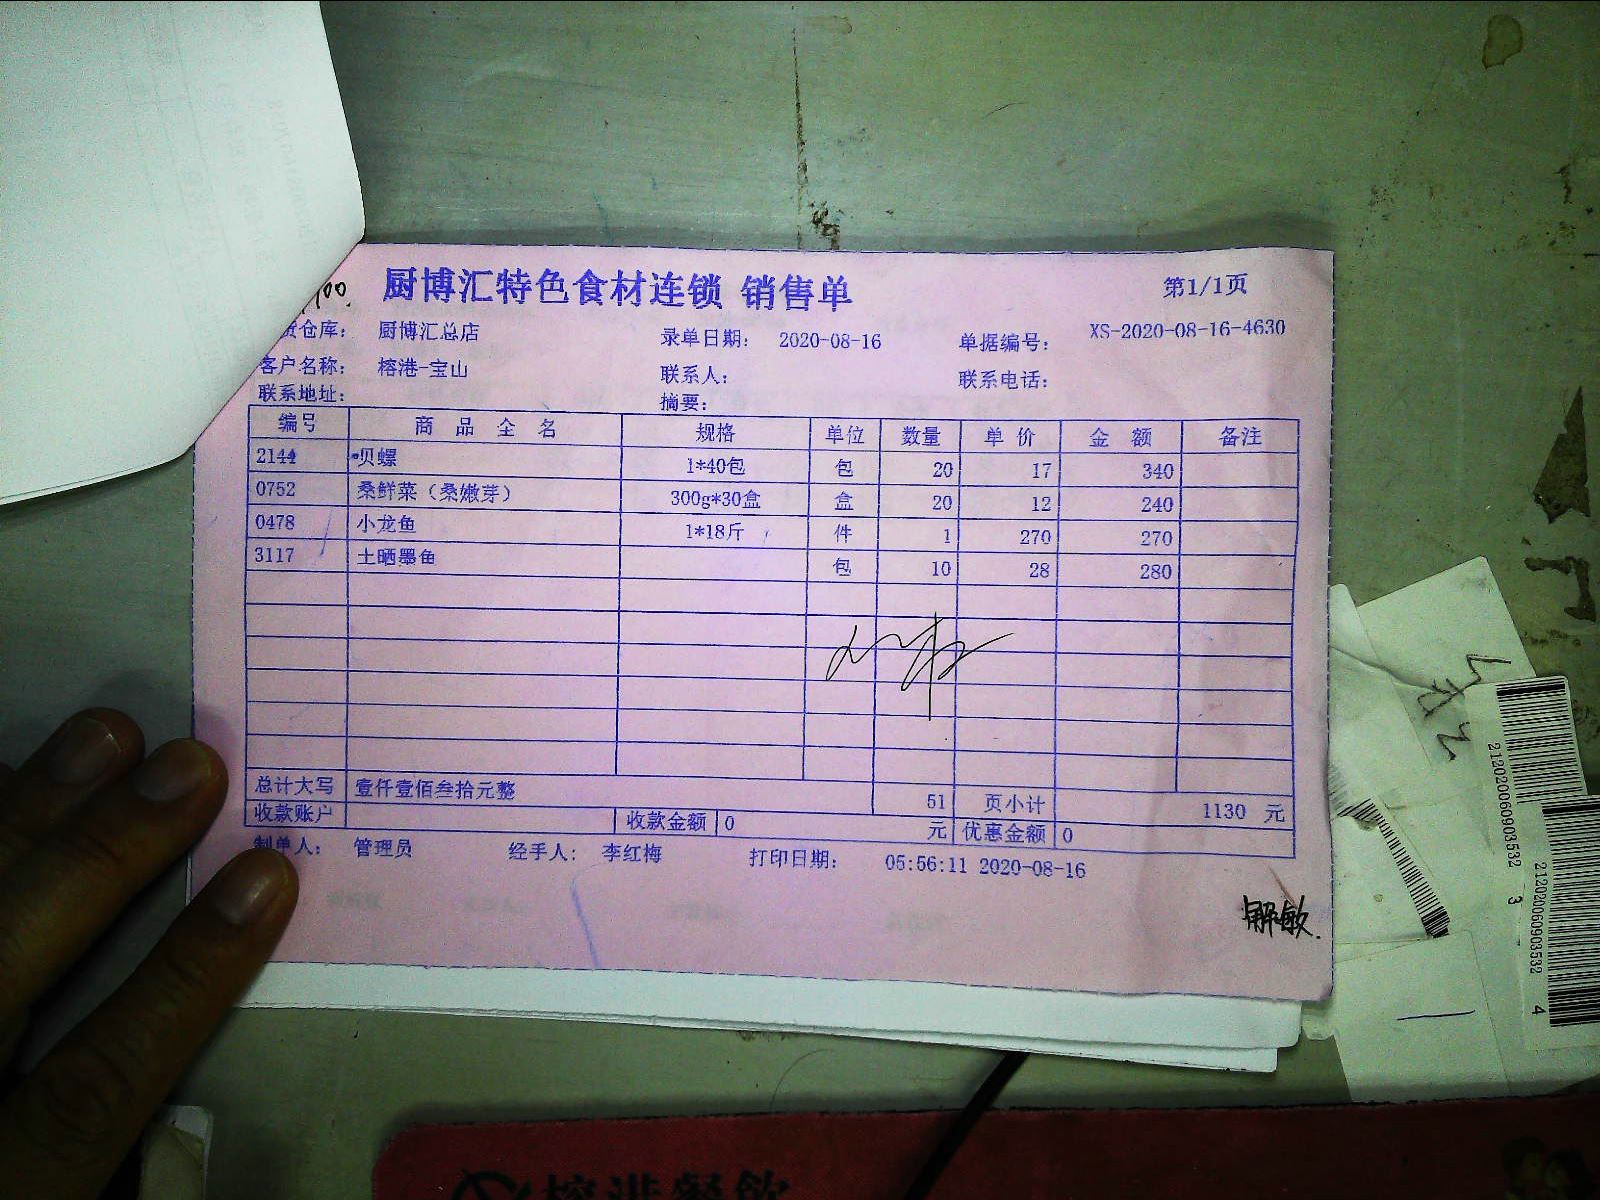 厨博汇特色食材连锁 销售单 第1/1页
货仓库： 厨博汇总店 录单日期： 2020-08-16 单据编号： XS-2020-08-16-4630
客户名称： 榕港-宝山 联系人： 联系电话：
联系地址： 摘要：
编号 商品全名 规格 单位 数量 单价 金额 备注
2144 贝螺 1*40包 包 20 17 340
0752 桑鲜菜（桑嫩芽） 300g*30盒 盒 20 12 240
0478 小龙鱼 1*18斤 件 1 270 270
3117 土晒墨鱼 包 10 28 280
总计大写 壹仟壹佰叁拾元整 51 页小计 1130 元
收款账户 收款金额 0 元 优惠金额 0
制单人： 管理员 经手人： 李红梅 打印日期： 05:56:11 2020-08-16
解敏.
212020060903532 3
212020060903532 4
榕港餐饮